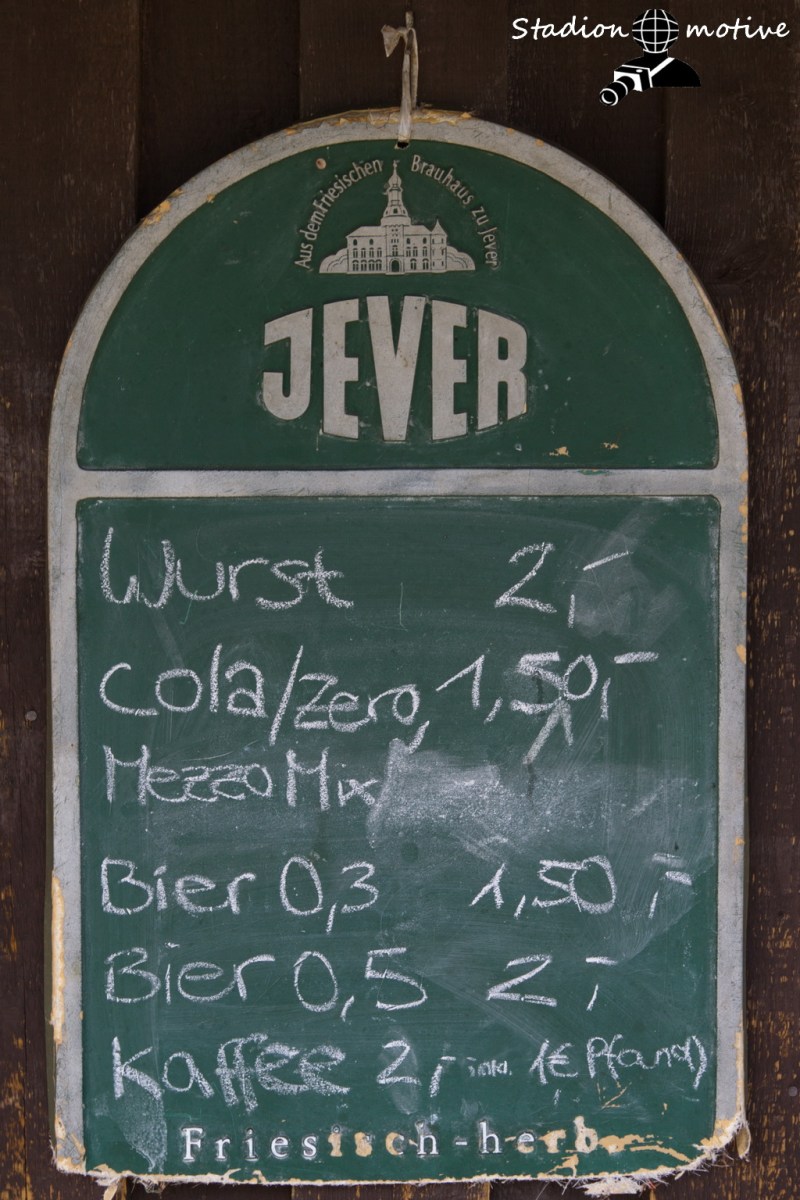 Stadion motive
Aus dem friesischen Brauhaus zu Jever
JEVER
Wurst 2,-
Cola/Zero, 1,50,-
Mezzo Mix
Bier 0,3 1,50,-
Bier 0,5 2,-
Kaffee 2,- inkl. 1€ Pfand)
Friesisch-herb.